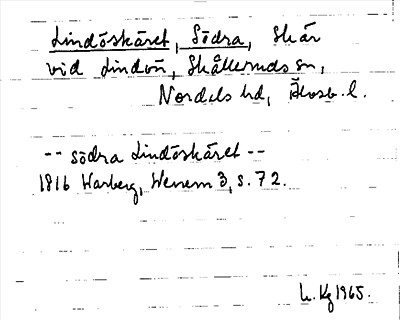 Lindöskäret, Södra, Skär
vid Lindön, Skålleruds sn,
Nordals hd, Älvsb. l.
-- södra Lindöskäret --
1816 Warberg, Wenern 3, s. 72.
L. Kg 1965.